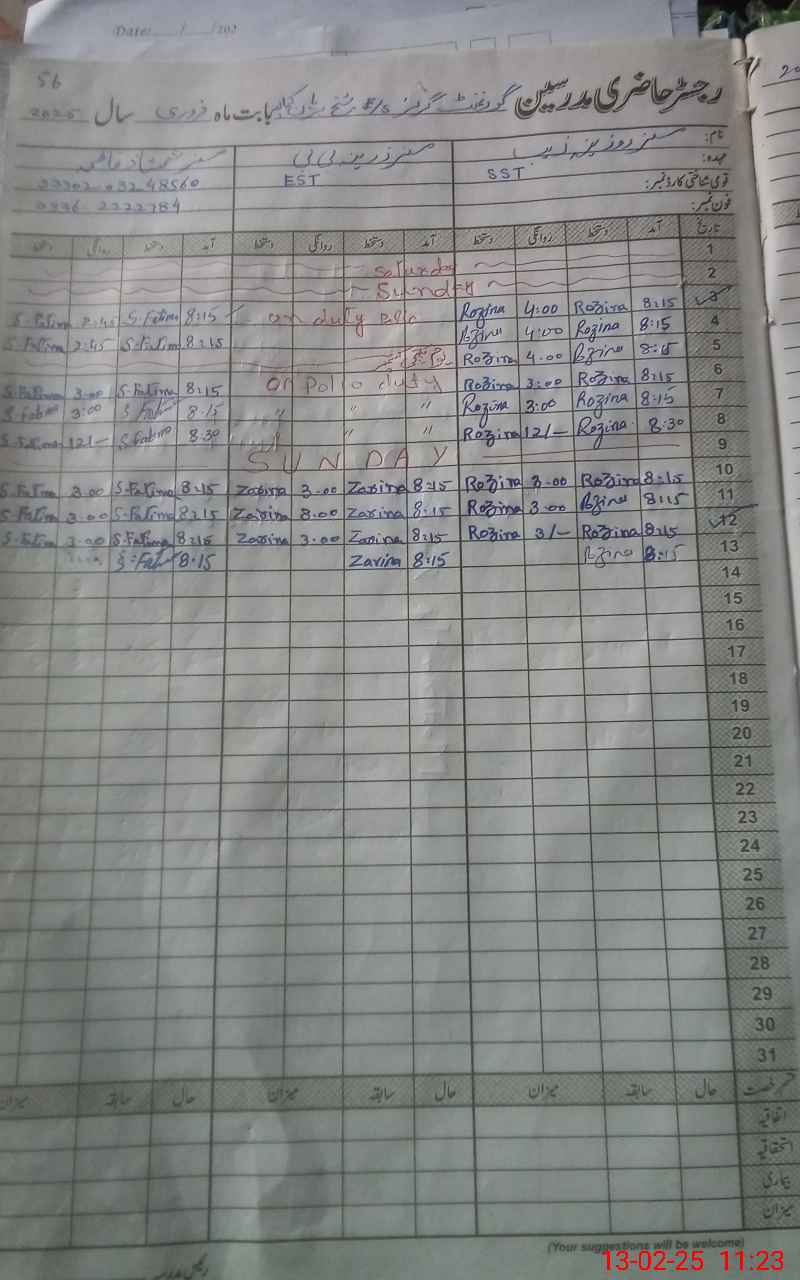 Date: ___/___/202
56
رجسٹر حاضری مدرسین گورنمنٹ گرلز E/S بابت ماہ فروری سال 2025
نام: مسز روزینہ مسز زرینہ بی بی مسز شمشاد فاطمہ
عہدہ: SST EST
قومی شناختی کارڈ نمبر:
فون نمبر:
تاریخ آمد دستخط روانگی دستخط آمد دستخط روانگی دستخط آمد دستخط روانگی دستخط
1 Saturday
2 Sunday
3 8:15 Rozina 4:00 Rozina on duly 8:15 S.Fatima 2:45 S.Fatima
4 8:15 Rozina 4:00 Rozina 8:15 S.Fatima 2:45 S.Fatima
5 8:15 Rozina 4.00 Rozina
6 8:15 Rozina 3:00 Rozina on Polio duty 8:15 S.Fatima 3.00 S.Fatima
7 8:15 Rozina 3:00 Rozina " " " 8:15 S.Fatima 3:00 S.Fatima
8 8:30 Rozina 12/- Rozina " " 8.30 S.Fatima 12/- S.Fatima
9 SUNDAY
10 8:15 Rozina 3.00 Rozina 8:15 Zarina 3.00 Zarina 8:15 S.Fatima 3.00 S.Fatima
11 8:15 Rozina 3.00 Rozina 8:15 Zarina 3.00 Zarina 8:15 S.Fatima 3.00 S.Fatima
12 8:15 Rozina 3/- Rozina 8:15 Zarina 3.00 Zarina 8:15 S.Fatima 3.00 S.Fatima
13 8:15 Rozina 8:15 Zarina 8:15 S.Fatima
14
15
16
17
18
19
20
21
22
23
24
25
26
27
28
29
30
31
رخصت حال سابقہ میزان حال سابقہ میزان حال سابقہ میزان
اتفاقیہ
استحقاقیہ
بیماری
میزان
(Your suggestions will be welcome)
رئیس مدرسہ
13-02-25 11:23